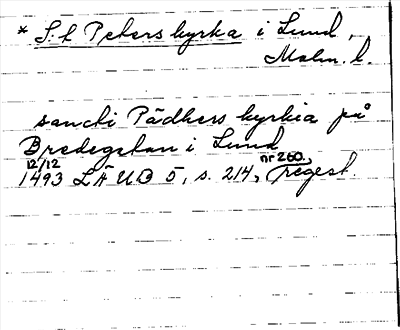 * S:t Peters kyrka i Lund,
Malm. l.
sancti Pädhers kyrkia på
Bredegatan i Lund
12/12 nr 260,
1493 LÄUB 5, s. 214, regest.